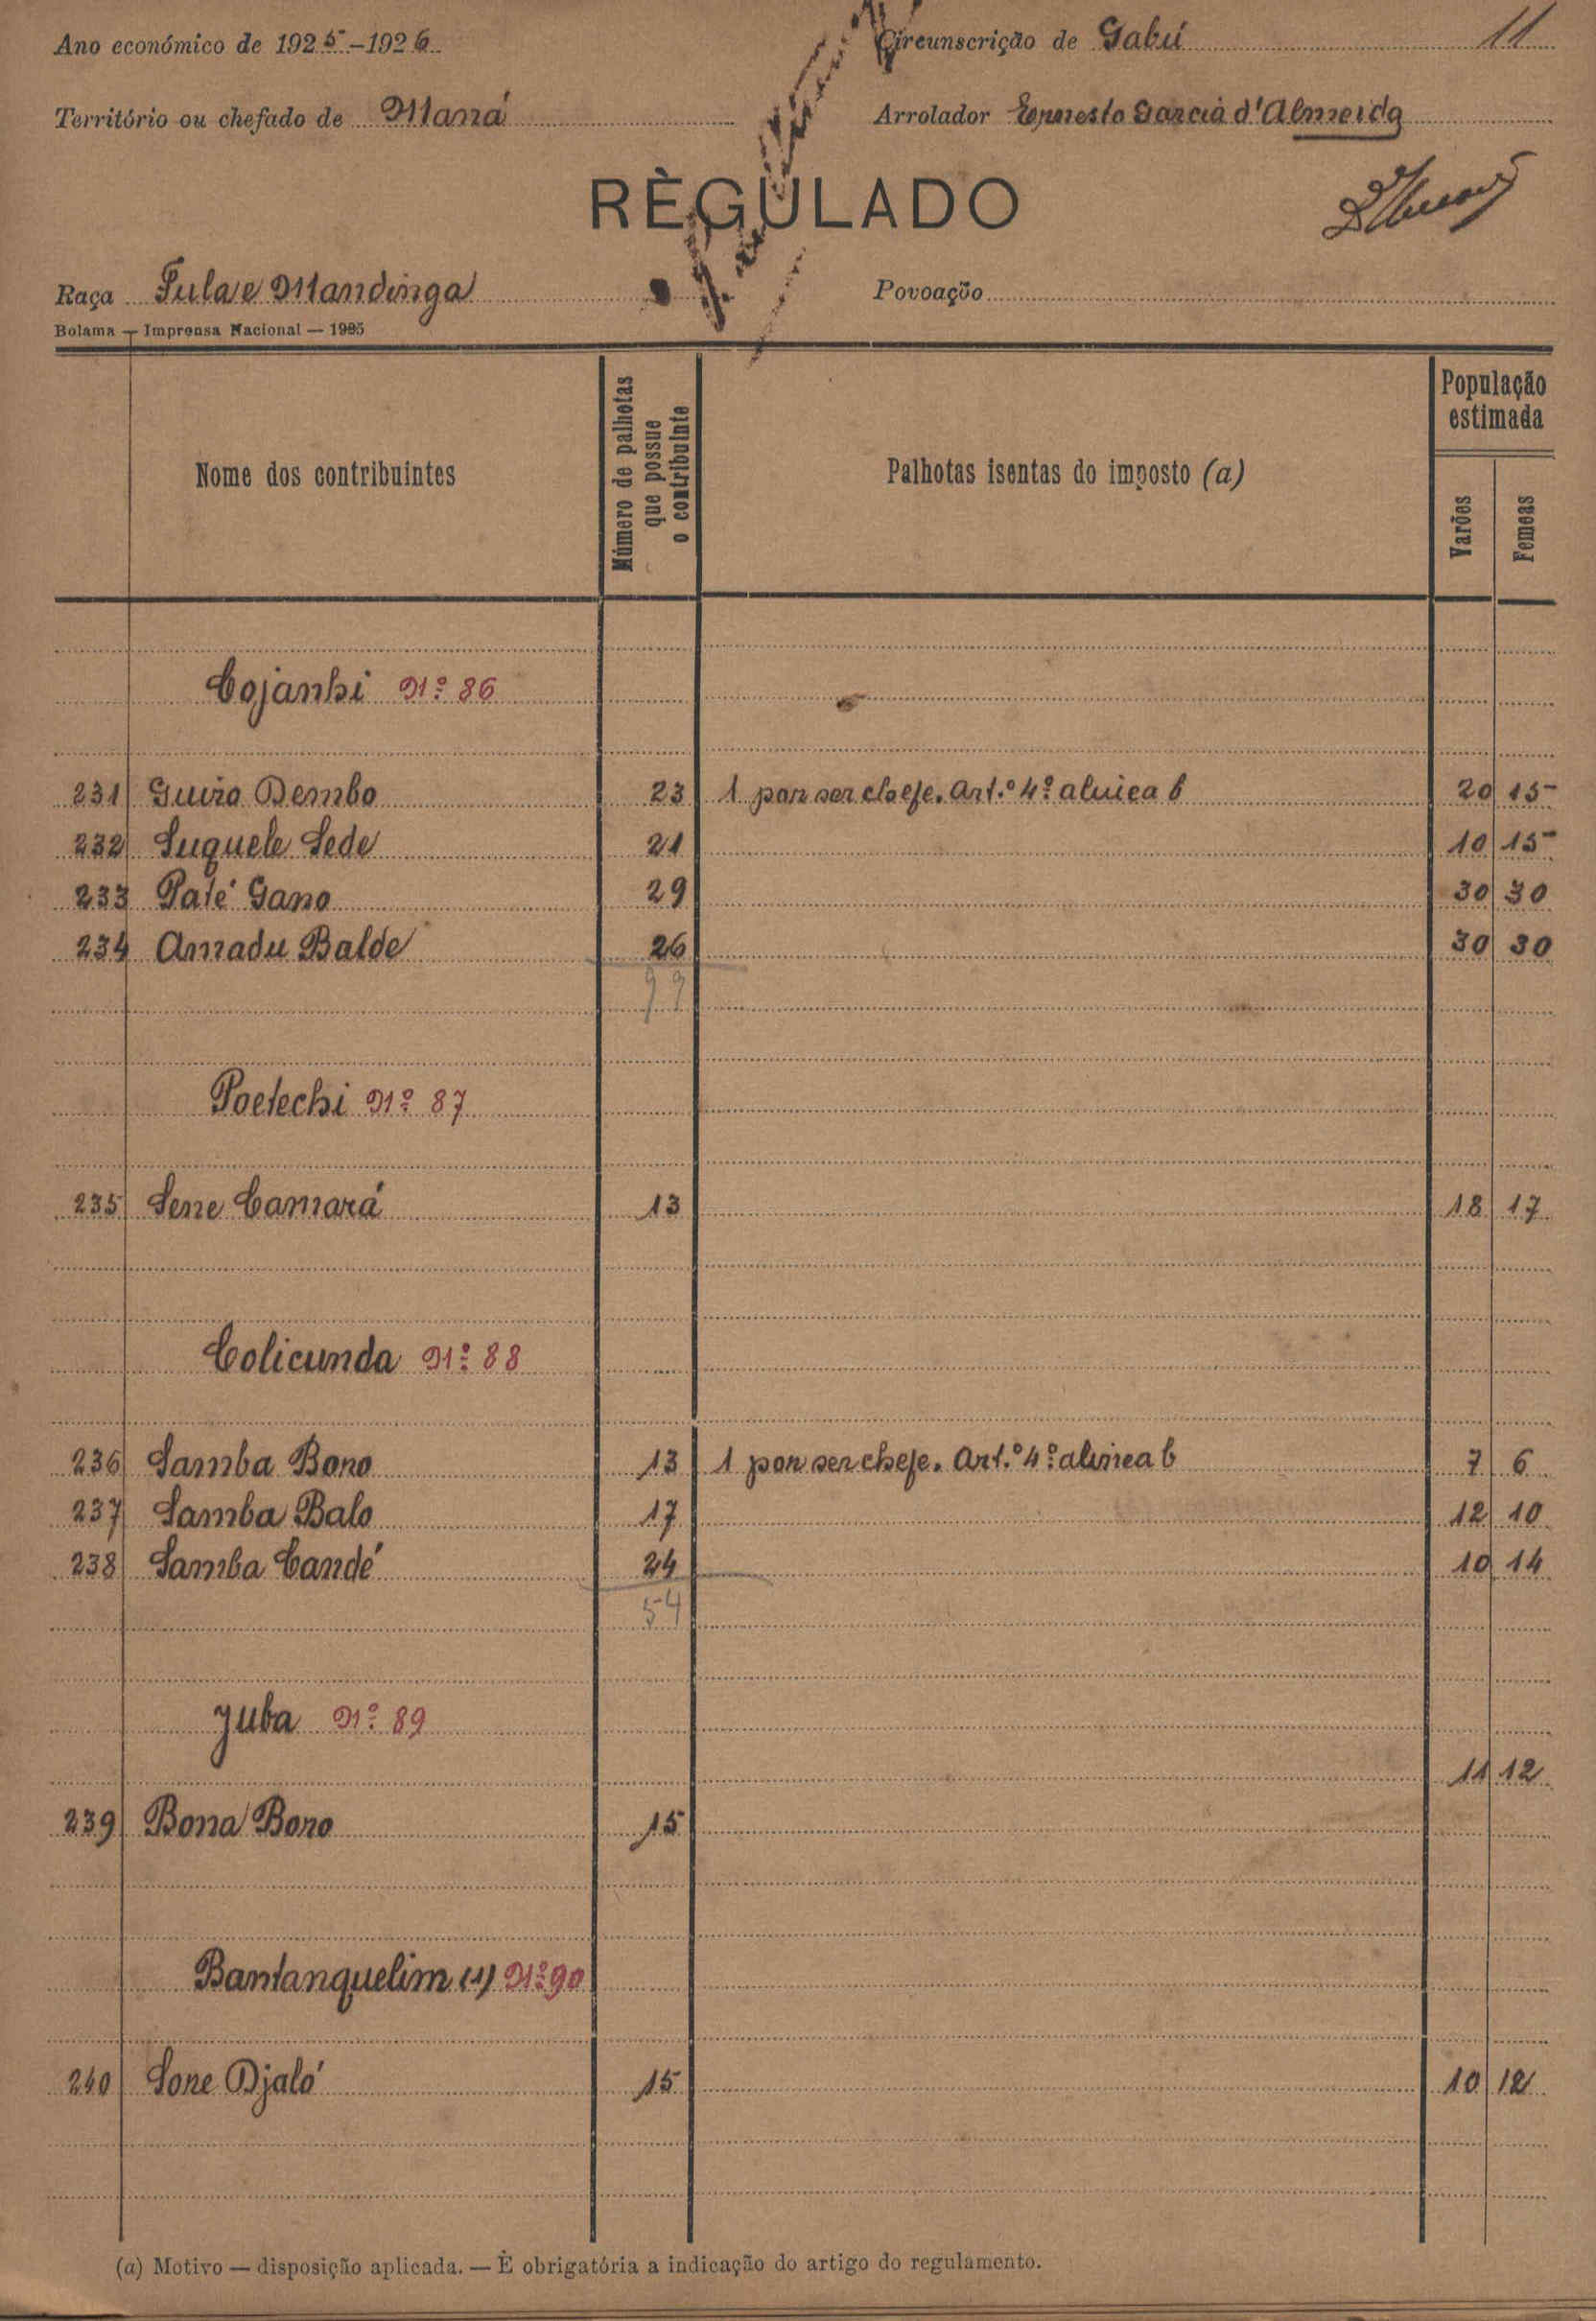 Ano económico de 1925-1926 Circunscrição de Gabú 11
Território ou chefado de Maná Arrolador Ernesto Garcia d'Almeida
RÈGULADO
Raça Fula e Mandinga Povoação
Bolama — Imprensa Nacional — 1925
Nome dos contribuintes Número de palhotas que possue o contribuinte Palhotas isentas do imposto (a) População estimada Varões Femeas
Cojanhi Nº 86
231 Guiro Dembo 23 1 por ser chefe. Art.º 4º alinea b 20 15
232 Suquele Sede 21 10 15
233 Paté Gano 29 30 30
234 Amadu Balde 26 30 30
99
Poetechi Nº 87
235 Sene Camará 13 18 17
Colicunda Nº 88
236 Samba Bono 13 1 por ser chefe. Art.º 4º alinea b 7 6
237 Samba Balo 17 12 10
238 Samba Candé 24 10 14
54
Juba Nº 89
11 12
239 Bona Boro 15
Bantanquelim (1) Nº 90
240 Sone Djaló 15 10 12
(a) Motivo — disposição aplicada. — È obrigatória a indicação do artigo do regulamento.